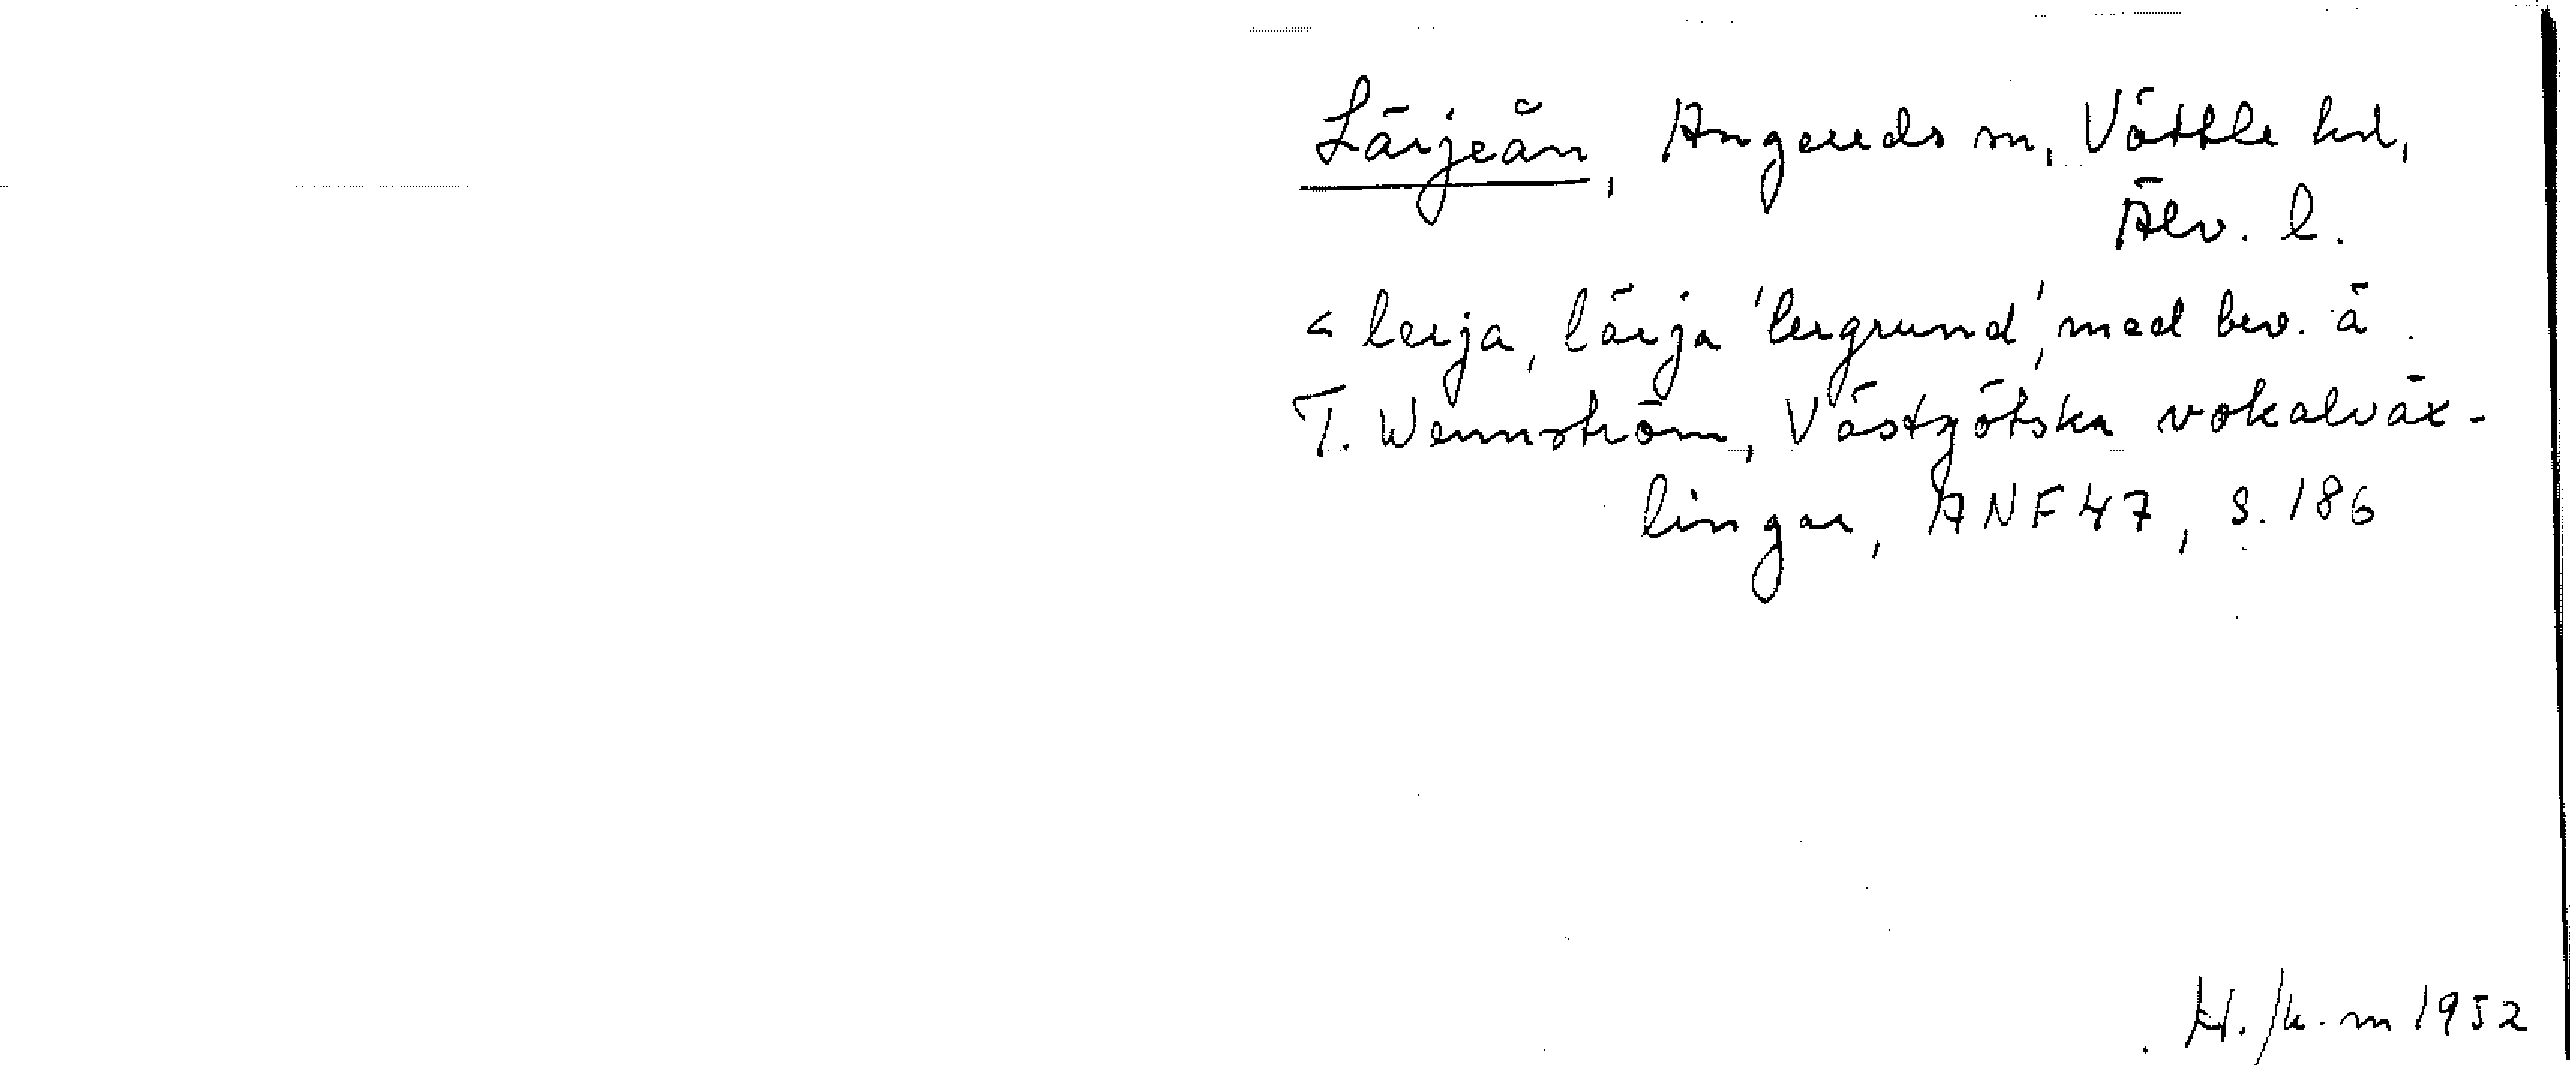 Lärjeån, Angereds sn, Vättle hd,
Älv. l.
< lerja, lärja 'lergrund', med bev. ä.
T. Wennström, Västgötska vokalväx-
lingar, ANF 47, s. 186
H. /k. m 1952